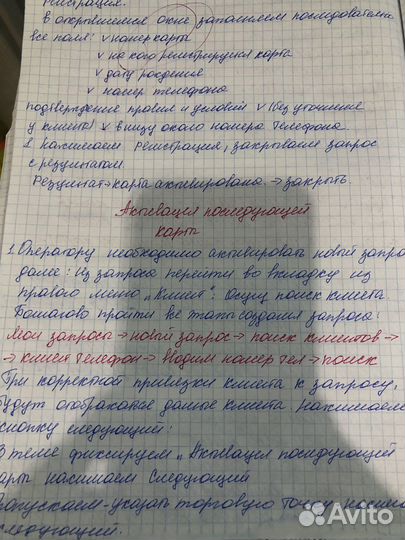 Регистрация.
В открывшемся окне заполняем последователь
все поля: v номер карты
v на кого регистрируем карта
v дату рождения
v номер телефона
Подтверждение правил и условий v (без уточнение
у клиента) v внизу около номера телефона.
нажимаем регистрация, закрываем запрос
с результатом.
Результат → карта активирована. → закрыть.
Активация последующей
карты
1. Оператору необходимо активировать новый запро
далее: из запроса перейти во вкладку из
правого меню „Клиент". Осущ поиск клиента.
Пошагово пройти все этапы создания запроса:
Мои запросы → новый запрос → поиск клиентов →
→ клиент телефон → вводим номер тел → поиск
При корректной привязки клиента к запросу,
будут отображаться данные клиента. Нажимаем
кнопку следующий:
В теме фиксируем „Активация последующей
карты нажимаем следующий
Запускаем - указать торговую точку, нажима
следующий.
Avito